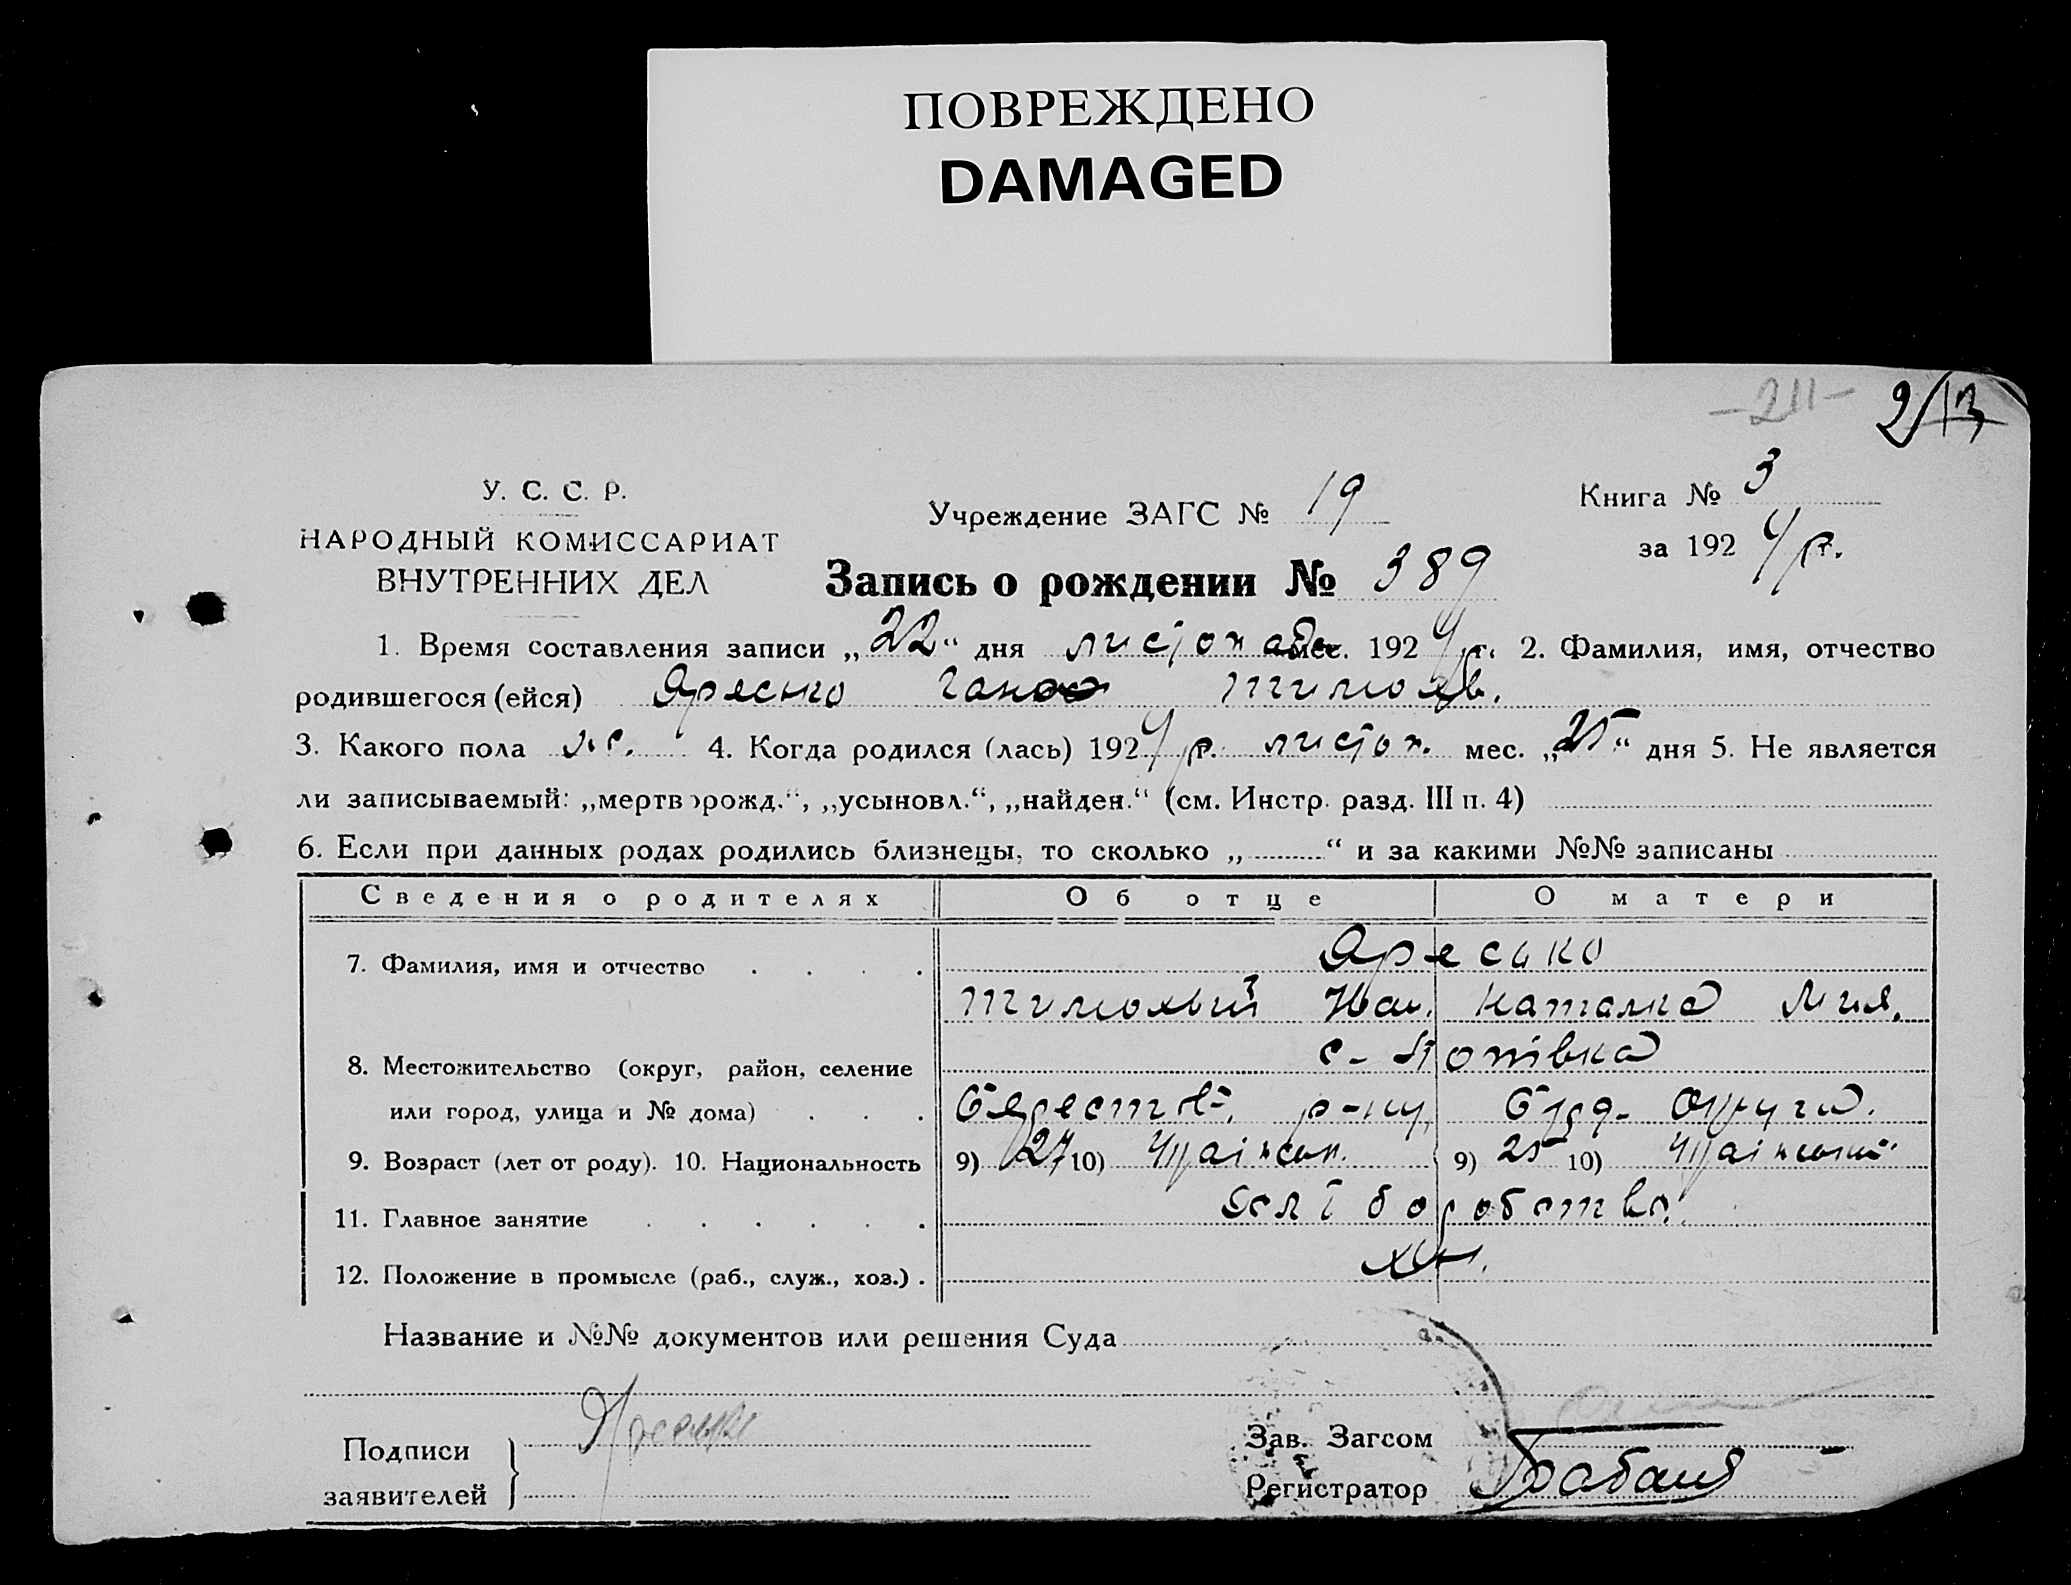 ПОВРЕЖДЕНО
DAMAGED
-211-
У. С. С. Р.
НАРОДНЫЙ КОМИССАРИАТ
ВНУТРЕННИХ ДЕЛ
Учреждение ЗАГС № 19
Книга № 3
за 1924 р.
Запись о рождении № 389
1. Время составления записи „22“ дня листопада мес. 1924 р. 2. Фамилия, имя, отчество
родившегося (ейся) Яресько Ганна Тимохв.
3. Какого пола ж. 4. Когда родился (лась) 1924 р. листоп. мес. „ “ дня 5. Не является
ли записываемый: „мертворожд.“, „усыновл.“, „найден.“ (см. Инстр. разд. III п. 4)
6. Если при данных родах родились близнецы, то сколько „ “ и за какими №№ записаны
Сведения о родителях Об отце О матери
7. Фамилия, имя и отчество Яресько
Тимохвий Наталка
8. Местожительство (округ, район, селение с-
или город, улица и № дома) р-ну, Округи.
9. Возраст (лет от роду). 10. Национальность 9) 27 10) 9) 25 10)
11. Главное занятие
12. Положение в промысле (раб., служ., хоз.)
Название и №№ документов или решения Суда
Подписи
заявителей
Зав. Загсом
Регистратор